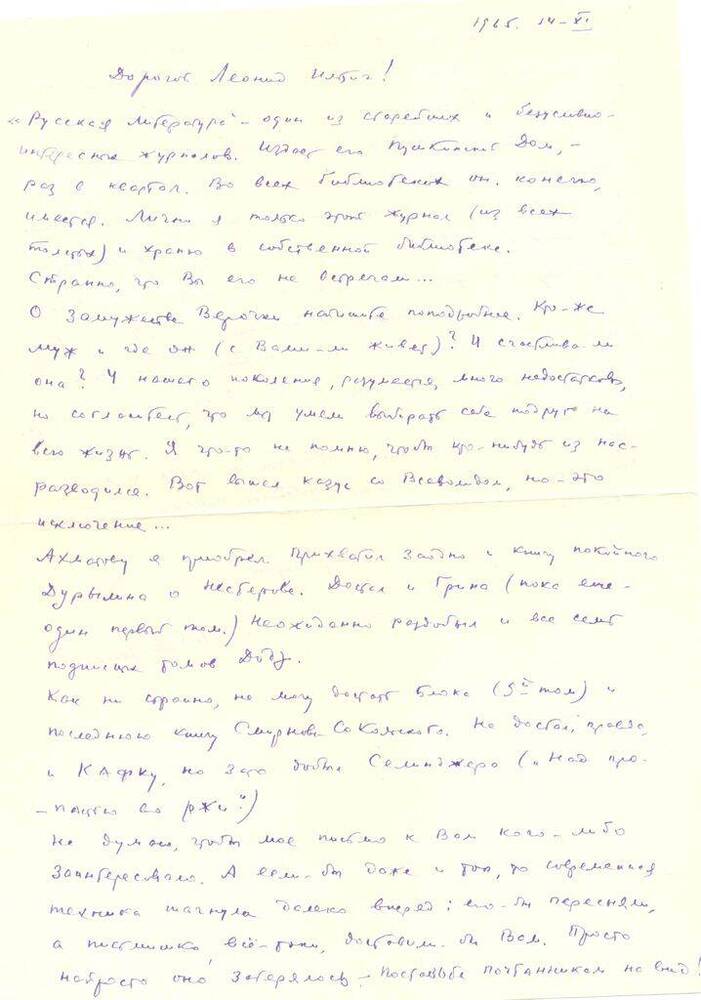 1965. 14-XI
Дорогой Леонид Ильич!
«Русская литература" – один из старейших и безусловно-
интересных журналов. Издает его Пушкинский Дом, –
раз в квартал. Во всех библиотеках он, конечно,
имеется. Лично я только этот журнал (из всех
толстых) и храню в собственной библиотеке.
Странно, что Вы его не встречали...
О замужестве Верочки напишите поподробнее. Кто-же
муж и где он (с Вами-ли живет)? И счастлива-ли
она? У нашего поколения, разумеется, много недостатков,
но согласитесь, что мы умели выбирать себе подруг на
всю жизнь. Я что-то не помню, чтобы кто-нибудь из нас-
разводился. Вот вышел казус со Всеволодом, но – это
исключение...
Ахматову я приобрел. Прихватил заодно и книгу покойного
Дурылина о Нестерове. Достал и Грина (пока еще-
один первый том.) Неожиданно раздобыл и все семь
подписных томов
Как ни странно, не могу достать Блока (5й том) и
последнюю книгу Смирнова-Сокольского. Не достал, правда,
и Кафку, но зато добыл Селинджера („Над про-
-пастью во ржи".)
Не думаю, чтобы мое письмо к Вам кого-либо
заинтересовало. А если-бы даже и так, то современная
техника шагнула далеко вперед: его-бы пересняли,
а письмишко, всё-таки, доставили-бы Вам. Просто
напросто оно затерялось – поставьте почтальонам на вид!